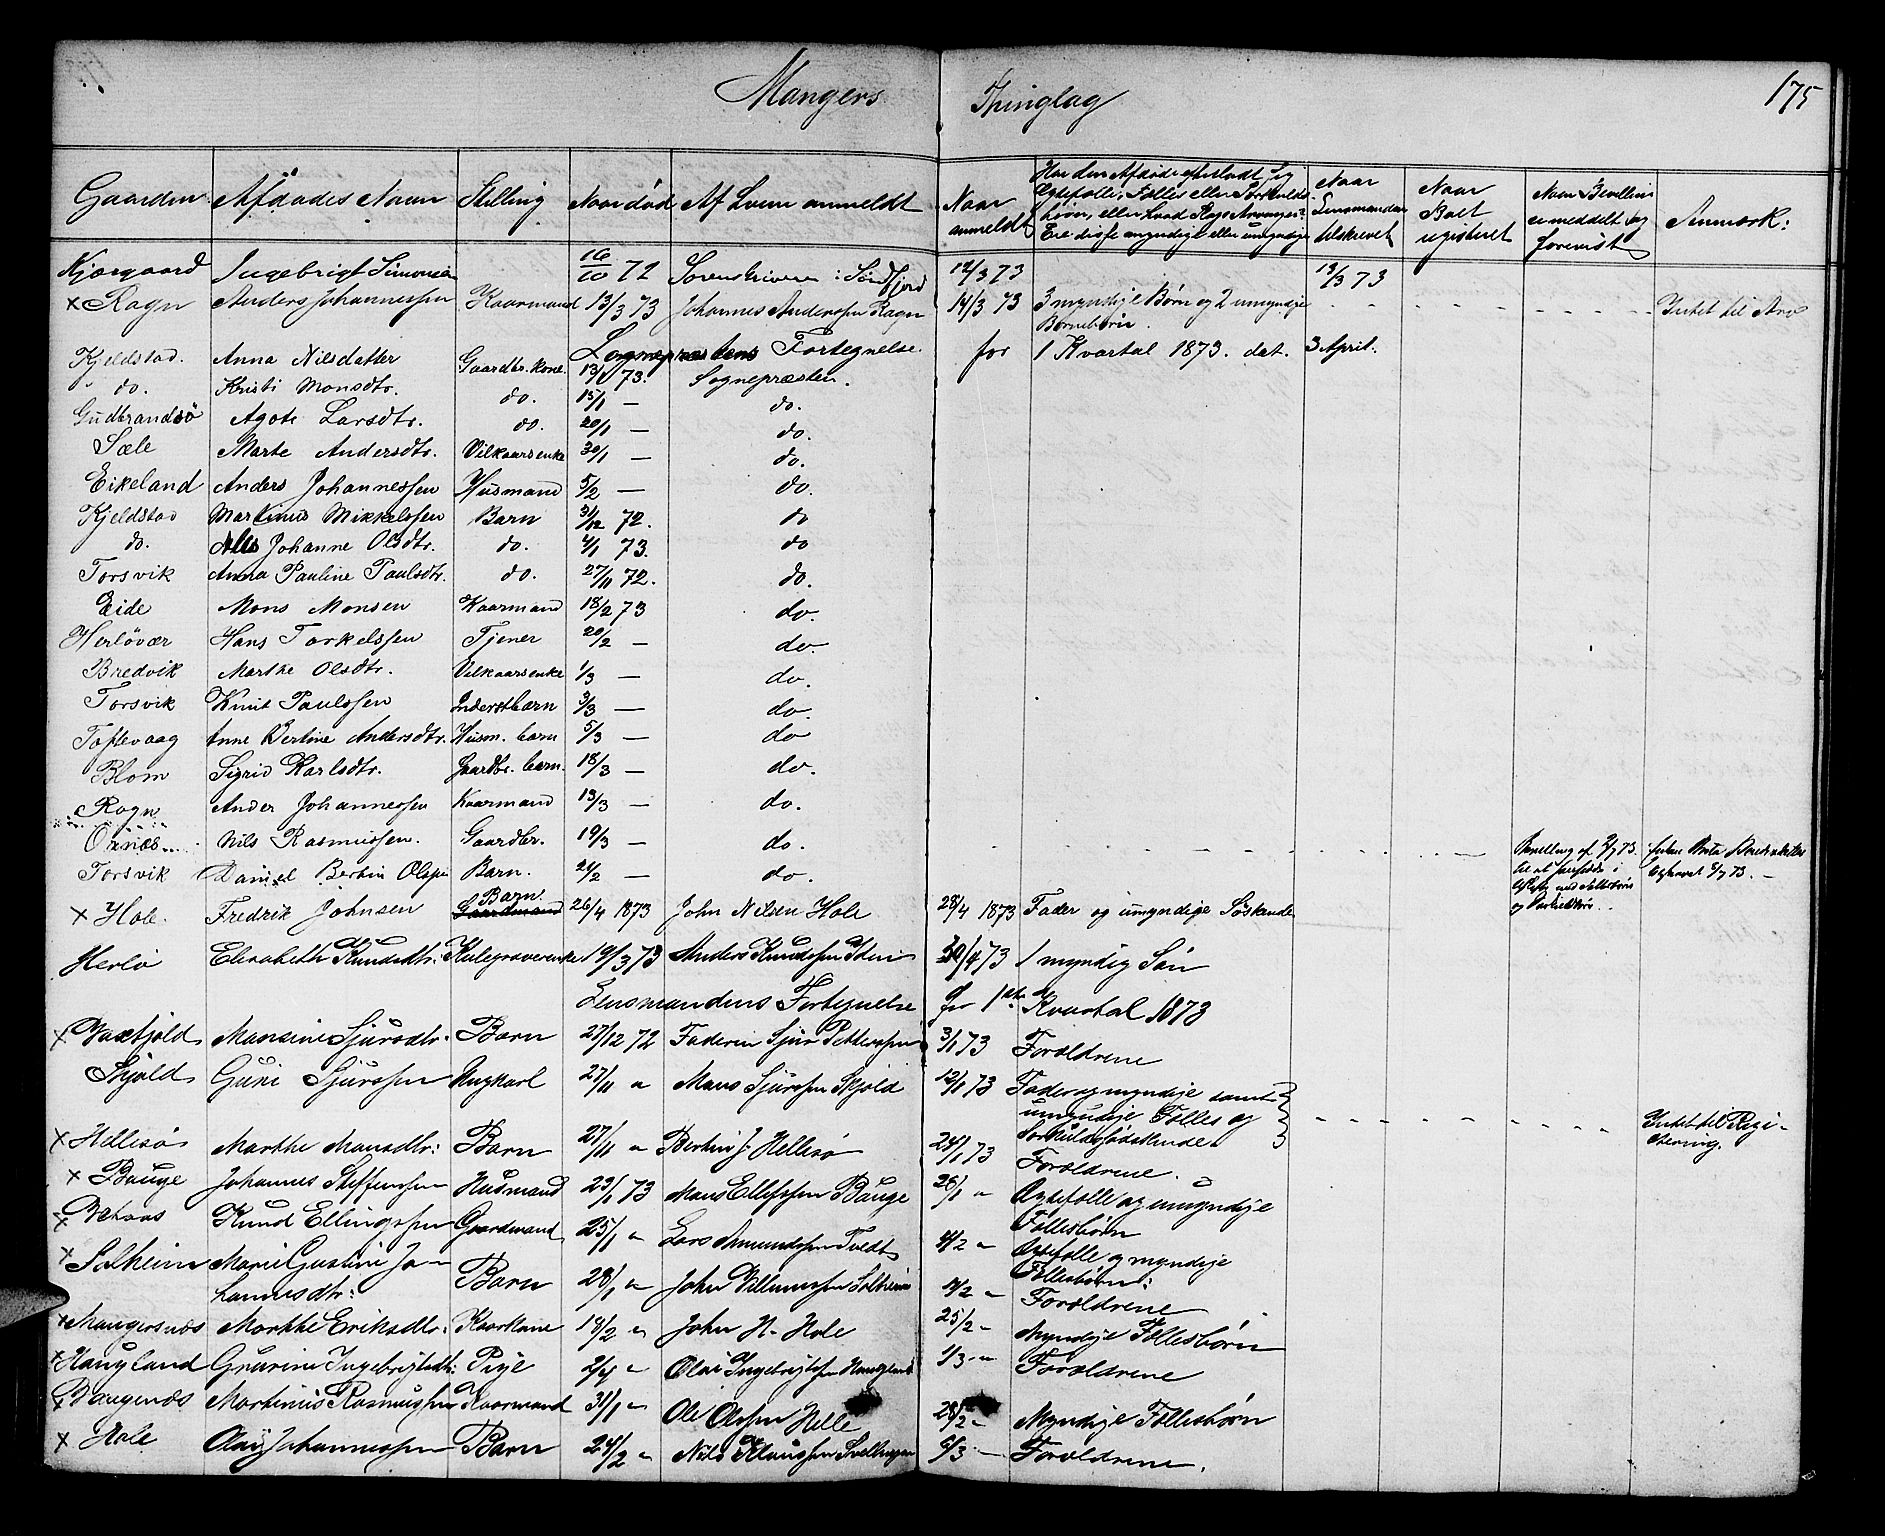 Mangers Thinglag 175
Gaarden Afdødes Navn Stilling Naar død Af hvem anmeldt Naar anmeldt Har den Afdøde efterladt sig Ægtefælle, Fælles eller Særkuldsbørn, eller hvad Slags Arvinger? Ere disse myndige eller umyndige Naar Lensmanden tilskrevet Naar Boet registeret Naar Bevilling er meddelt og forevist Anmærk:
Kjærgaard Ingebrigt Simonsen 16/10 72 Sorenskriveren i Søndfjord 12/3 73 13/3 73
x Rogn Anders Johannessen Kaarmand 13/3 73 Johannes Anderssen Rogn 14/3 73 3 myndige Børn og 2 umyndige Børnebørn. Intet til Arv
Sognepræstens Fortegnelse for 1 Kvartal 1873. dat. 3 April.
Kjeldstad. Anna Nilsdatter Gaardbr. kone. 13/1 73. Sognepræsten.
do. Kristi Monsdtr. do. 15/1 — do.
Gudbrandsö Agote Larsdtr. do. 20/1 — do.
Sæle Marte Andersdtr. Vilkaarsenke 30/1 — do.
Eikeland Anders Johannessen Husmand 5/2 — do.
Kjeldstad Martinus Mikkelssen Barn 31/12 72. do
do. Johanne Olsdtr. do. 4/1 73. do
Torsvik Anna Pauline Paulsdtr. do. 27/11 72. do.
Eide Mons Monsen Kaarmand 18/2 73 do.
Herløvær Hans Torkelssen Tjener 20/2 — do.
Bredvik Marthe Olsdtr. Vilkaarsenke 1/3 — do.
Torsvik Knut Paulssen Inderstbarn 3/3 — do.
Toftevaag Anne Bertine Andersdtr. Husm. barn 5/3 — do
Blom Sigrid Karlsdtr. Gaardbr. barn. 18/3 — do.
Rogn Ander Johannessen Kaarmand 13/3 — do.
Oxnæs Nils Rasmussen. Gaardbr. 19/3 — do.
Torsvik Daniel Bertin Olsen Barn. 21/2 — do.
x Hole Fredrik Johnsen Barn. 26/4 1873 John Nilsen Hole 28/4 1873 Fader og umyndige Søskende
Herlö Elisabeth Knudsdtr: Kulegraverenke 19/3 73 Anders Knudssen 30/4 73 1 myndig Søn
Lensmandens Fortegnelse for 1ste Kvartal 1873
x Mansine Sjursdtr. Barn 27/12 72 Faderen Sjur Pettersen 3/1 73 Forældrene
Skjold Guri Sjurssen Ungkarl 27/11 " Mons Sjurssen Skjold 12/1 73 Fader og myndige samt umyndige Fælles og Særkuldssødskende Intet til Regi-
stering.
x Hellisö Marthe Mansdtr: Barn 27/11 " Bertin J. Hellisö 24/1 73 Forældrene.
x Bauge Johannes Steffenssen Husmand 23/1 73 Mons Ellefssen Bauge 26/1 " Ægtefælle og umyndige Fællesbørn
x Knud Ellingssen Gaardmand 25/1 " Lars Amundssen Tvedt 4/2 " Ægtefælle og myndige Fællesbørn:
x Solheim Marie Gustine Johannesdtr: Barn 28/1 " John Villumssen Solheim 4/2 " Forældrene
x Mangersnæs Marthe Eriksdtr. Kaarkone 19/2 " John H. Hole 25/2 " Myndige Fællesbørn
x Haugland Gurine Ingebrigtsdtr: Pige Olai Ingebrigtssen Haugland 1/3 " Forældrene
x Baugenæs Martinus Rasmussen Kaarmand 31/1 " Ole Olssen Helle 28/2 " Myndige Fællesbørn
x Hole Olai Johannessen Barn 24/2 " Nils Klaussen 5/3 — Forældrene.